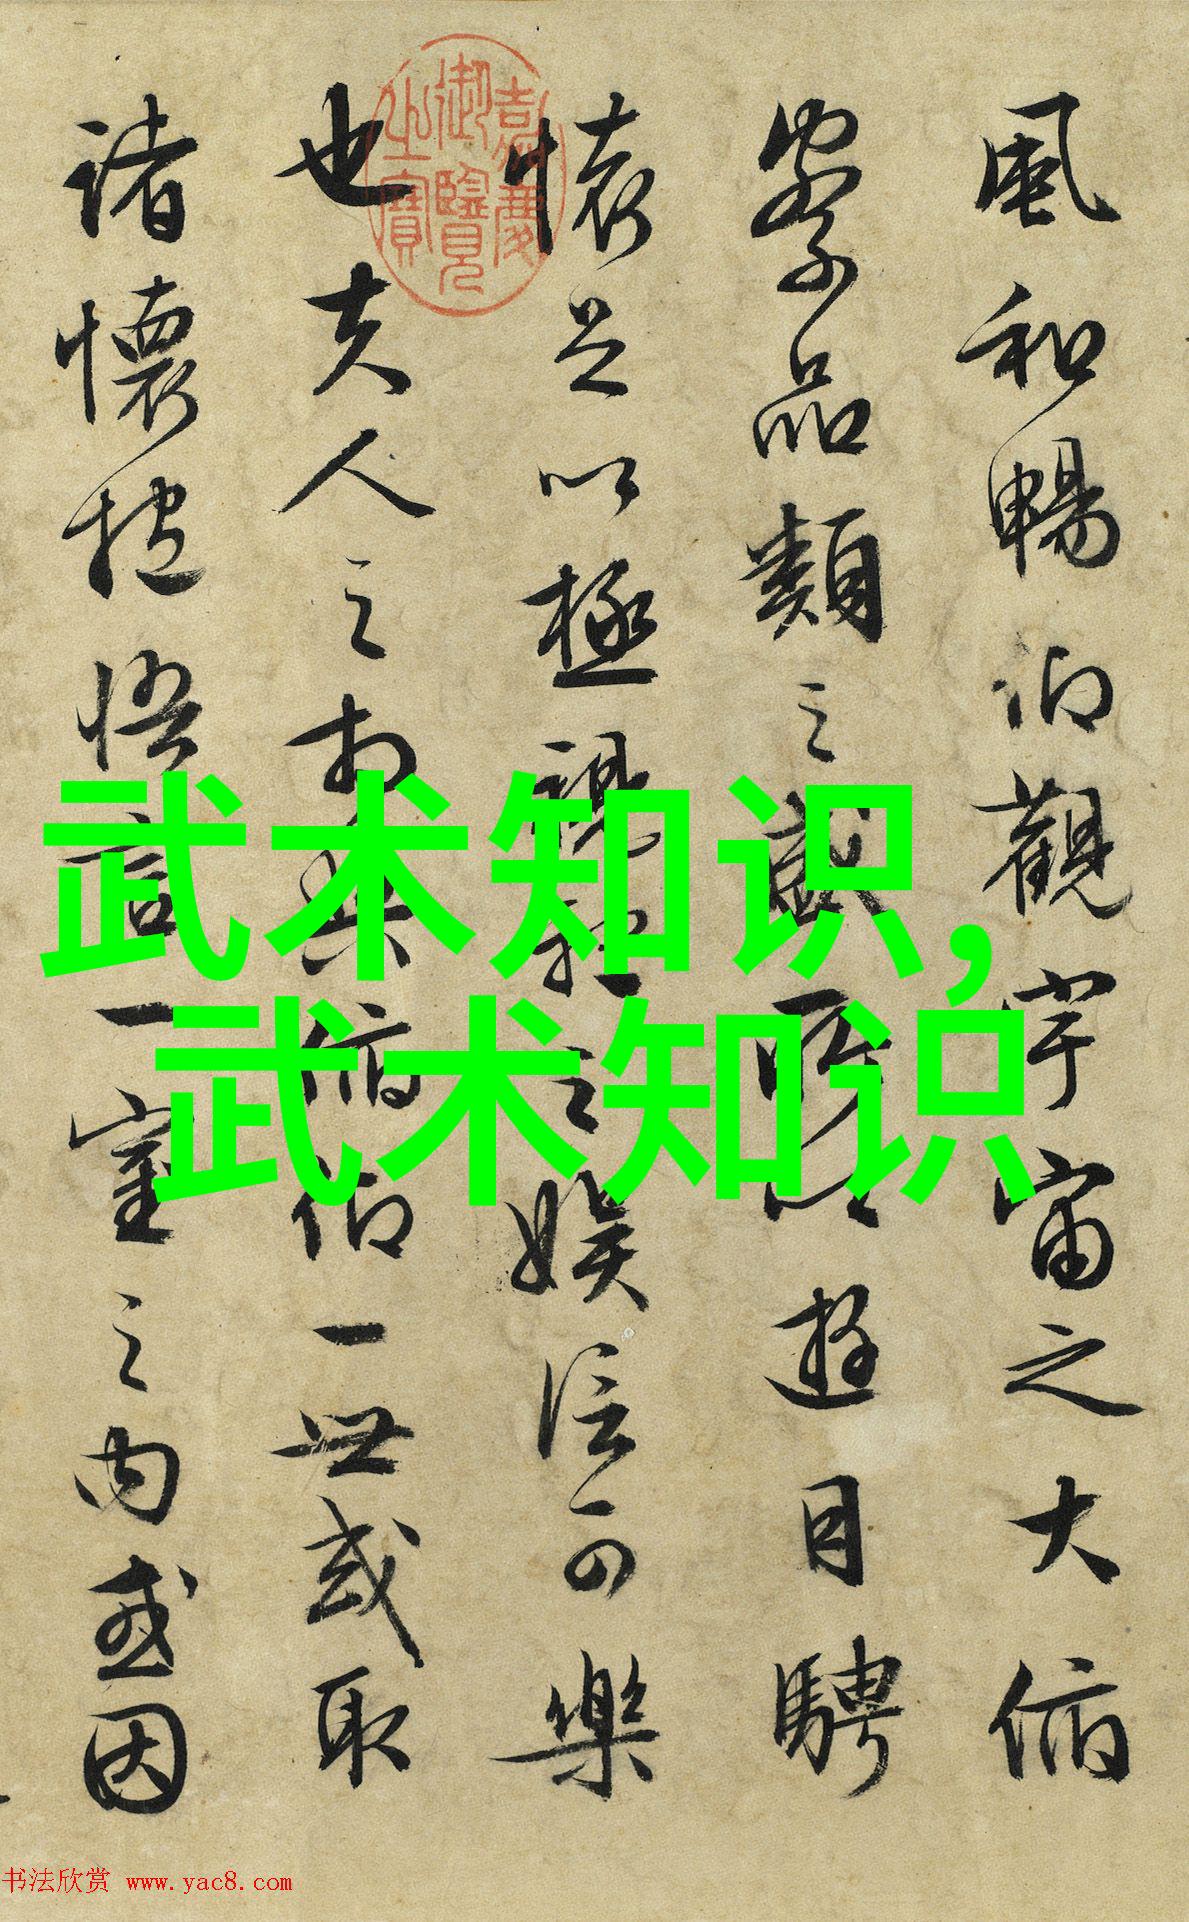 風和暢仰觀宇宙之大俯
察品類之盛所以遊目騁
懷足以極視聽之娛信可樂
也夫人之相與俯仰一世或取
諸懷抱悟言一室之內或因
嘉慶御覽之寶
武术知识,
武术知识
书法欣赏 www.yac8.com